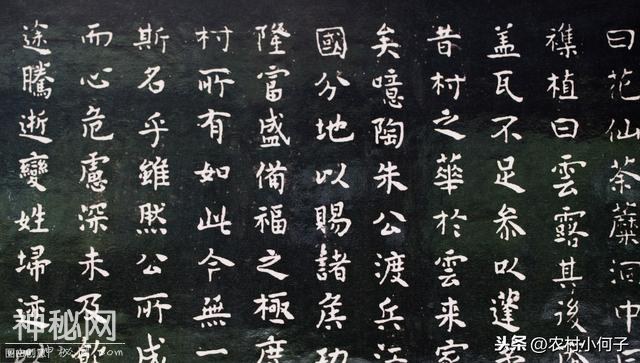 曰花仙荼蘼洞中
襍植曰雲露其後
盖瓦不足参以蓬
昔村之華於雲来
矣噫陶朱公渡兵
國分地以賜諸侯功
隆富盛備福之極度
村所有如此今無一
斯名乎雖然公所成
而心危慮深未及
途騰逝變姓埽迹
神秘网
头条@农村小何子